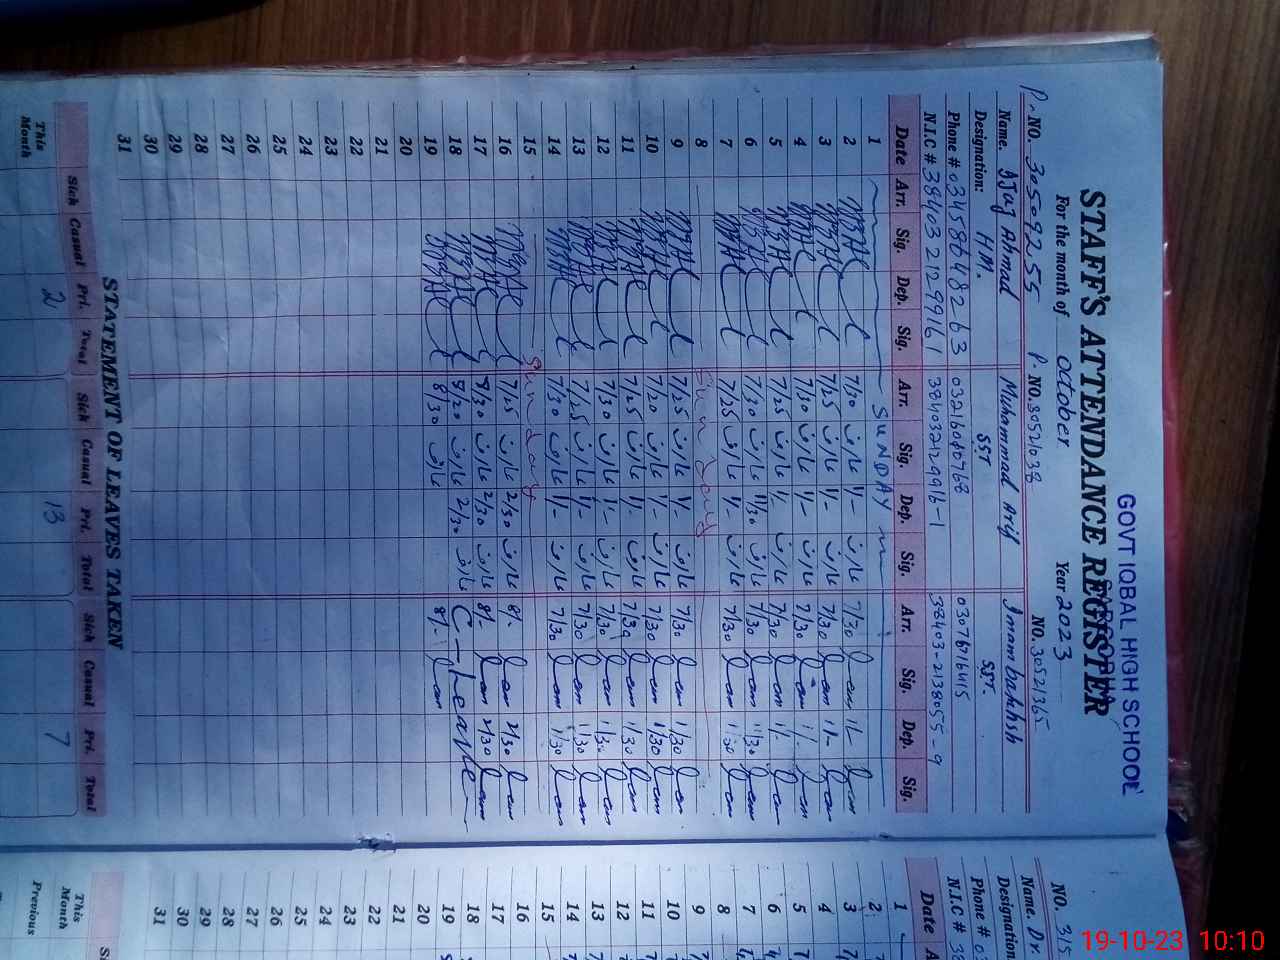 GOVT IQBAL HIGH SCHOOL
SARGODHA
STAFF'S ATTENDANCE REGISTER
For the month of October Year 2023
P. NO. 30509255 P. NO. 30521038 NO. 30521365
Name. Ijaz Ahmad Muhammad Arif Imam bakhsh
Designation: H.M. SST SST.
Phone # 03458648263 03216040768 03076716415
N.I.C # 3840321299961 384032129916-1 38403-2138055-9
Date Arr. Sig. Dep. Sig. Arr. Sig. Dep. Sig. Arr. Sig. Dep. Sig.
1 SUNDAY
2 7/30 عارف 1/- عارف 7/30 1/-
3 7/25 عارف 1/- عارف 7/30 1/-
4 7/30 عارف 1/- عارف 7/30 1/-
5 7/25 عارف 1/- عارف 7/30 1/-
6 7/30 عارف 11/30 عارف 7/30 11/30
7 7/25 عارف 1/- عارف 7/30 1/30
8 Sunday
9 7/25 عارف 1/- عارف 7/30 1/30
10 7/20 عارف 1/- عارف 7/30 1/30
11 7/25 عارف 1/- عارف 7/30 1/30
12 7/30 عارف 1/- عارف 7/30 1/30
13 7/25 عارف 1/- عارف 7/30 1/30
14 7/30 عارف 1/- عارف 7/30 1/30
15 Sunday
16 7/25 عارف 2/30 عارف 8/- 2/30
17 8/30 عارف 2/30 عارف 8/- 2/30
18 8/20 عارف 2/30 عارف C-Leave
19 8/30 عارف 8/-
20
21
22
23
24
25
26
27
28
29
30
31
STATEMENT OF LEAVES TAKEN
Sick Casual Pri. Total Sick Casual Pri. Total Sick Casual Pri. Total
This Month 2 13 7
NO. 315
Name. Dr.
Designation
Phone # 03
N.I.C # 38
Date A
1
2
3
4
5
6
7
8
9
10
11
12
13
14
15
16
17
18
19
20
21
22
23
24
25
26
27
28
29
30
31
This Month
Previous
19-10-23 10:10